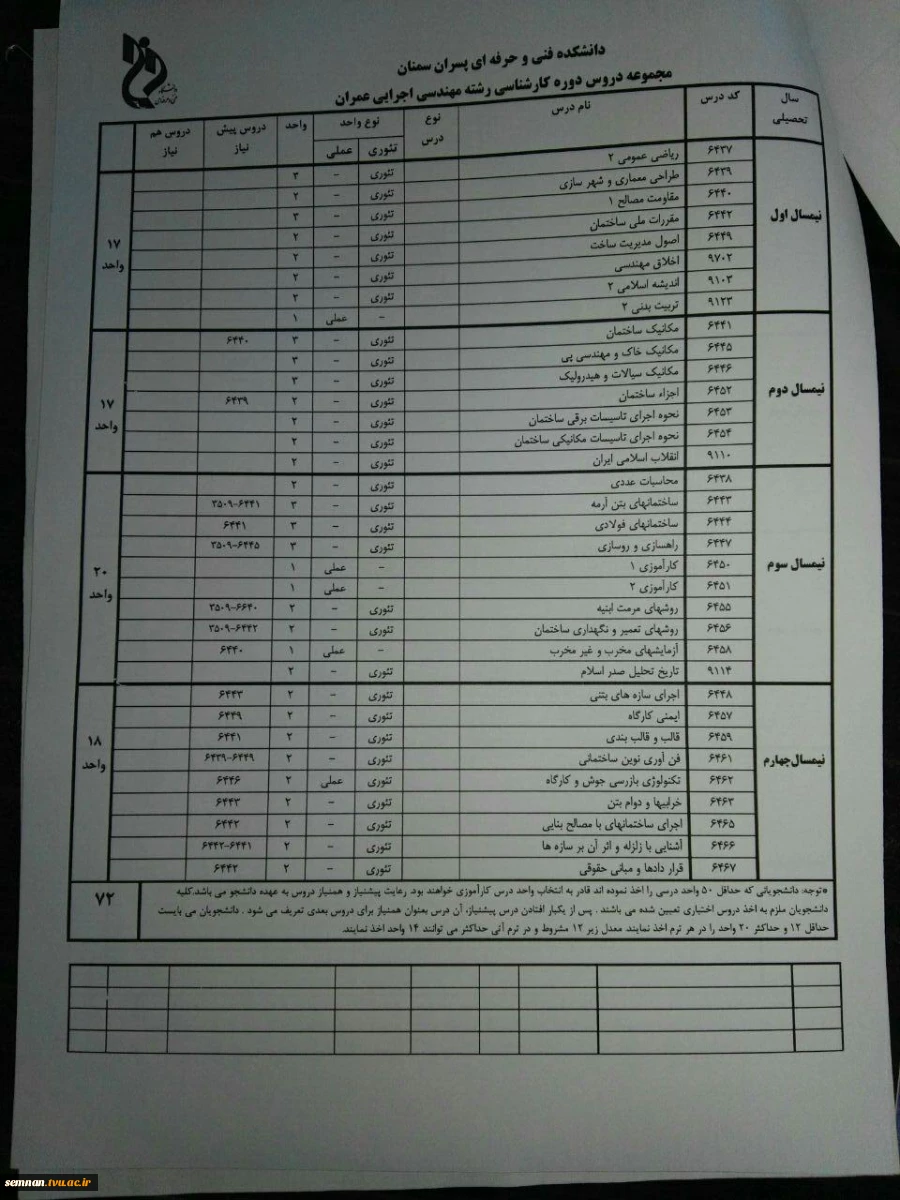 دانشکده فنی و حرفه ای پسران سمنان
مجموعه دروس دوره کارشناسی رشته مهندسی اجرایی عمران
سال تحصیلی کد درس نام درس نوع درس نوع واحد تئوری عملی واحد دروس پیش نیاز دروس هم نیاز
نیمسال اول
۶۴۳۷ ریاضی عمومی ۲ تئوری - ۳
۶۴۳۹ طراحی معماری و شهر سازی تئوری - ۲
۶۴۴۰ مقاومت مصالح ۱ تئوری - ۳
۶۴۴۲ مقررات ملی ساختمان تئوری - ۲
۶۴۴۹ اصول مدیریت ساخت تئوری - ۲
۹۷۰۲ اخلاق مهندسی تئوری - ۲
۹۱۰۳ اندیشه اسلامی ۲ تئوری - ۲
۹۱۲۳ تربیت بدنی ۲ - عملی ۱
۱۷ واحد
نیمسال دوم
۶۴۴۱ مکانیک ساختمان تئوری - ۳ ۶۴۴۰
۶۴۴۵ مکانیک خاک و مهندسی پی تئوری - ۳
۶۴۴۶ مکانیک سیالات و هیدرولیک تئوری - ۳
۶۴۵۲ اجزاء ساختمان تئوری - ۲ ۶۴۳۹
۶۴۵۳ نحوه اجرای تاسیسات برقی ساختمان تئوری - ۲
۶۴۵۴ نحوه اجرای تاسیسات مکانیکی ساختمان تئوری - ۲
۹۱۱۰ انقلاب اسلامی ایران تئوری - ۲
۱۷ واحد
نیمسال سوم
۶۴۳۸ محاسبات عددی تئوری - ۲
۶۴۴۳ ساختمانهای بتن آرمه تئوری - ۳ ۳۵۰۹-۶۴۴۱
۶۴۴۴ ساختمانهای فولادی تئوری - ۳ ۶۴۴۱
۶۴۴۷ راهسازی و روسازی تئوری - ۳ ۳۵۰۹-۶۴۴۵
۶۴۵۰ کارآموزی ۱ - عملی ۱
۶۴۵۱ کارآموزی ۲ - عملی ۱
۶۴۵۵ روشهای مرمت ابنیه تئوری - ۲ ۳۵۰۹-۶۶۴۰
۶۴۵۶ روشهای تعمیر و نگهداری ساختمان تئوری - ۲ ۳۵۰۹-۶۴۴۲
۶۴۵۸ آزمایشهای مخرب و غیر مخرب - عملی ۱ ۶۴۴۰
۹۱۱۴ تاریخ تحلیل صدر اسلام تئوری - ۲
۲۰ واحد
نیمسال چهارم
۶۴۴۸ اجرای سازه های بتنی تئوری - ۲ ۶۴۴۳
۶۴۵۷ ایمنی کارگاه تئوری - ۲ ۶۴۴۹
۶۴۵۹ قالب و قالب بندی تئوری - ۲ ۶۴۴۱
۶۴۶۱ فن آوری نوین ساختمانی تئوری - ۲ ۶۴۳۹-۶۴۴۹
۶۴۶۲ تکنولوژی بازرسی جوش و کارگاه تئوری عملی ۲ ۶۴۴۶
۶۴۶۳ خرابیها و دوام بتن تئوری - ۲ ۶۴۴۳
۶۴۶۵ اجرای ساختمانهای با مصالح بنایی تئوری - ۲ ۶۴۴۲
۶۴۶۶ آشنایی با زلزله و اثر آن بر سازه ها تئوری - ۲ ۶۴۴۲-۶۴۴۱
۶۴۶۷ قرار دادها و مبانی حقوقی تئوری - ۲ ۶۴۴۲
۱۸ واحد
*توجه: دانشجویانی که حداقل ۵۰ واحد درسی را اخذ نموده اند قادر به انتخاب واحد درس کارآموزی خواهند بود. رعایت پیشنیاز و همنیاز دروس به عهده دانشجو می باشد.کلیه
دانشجویان ملزم به اخذ دروس اختیاری تعیین شده می باشند . پس از یکبار افتادن درس پیشنیاز، آن درس بعنوان همنیاز برای دروس بعدی تعریف می شود . دانشجویان می بایست
حداقل ۱۲ و حداکثر ۲۰ واحد را در هر ترم اخذ نمایند. معدل زیر ۱۲ مشروط و در ترم آتی حداکثر می توانند ۱۴ واحد اخذ نمایند.
۷۲
semnan.tvu.ac.ir